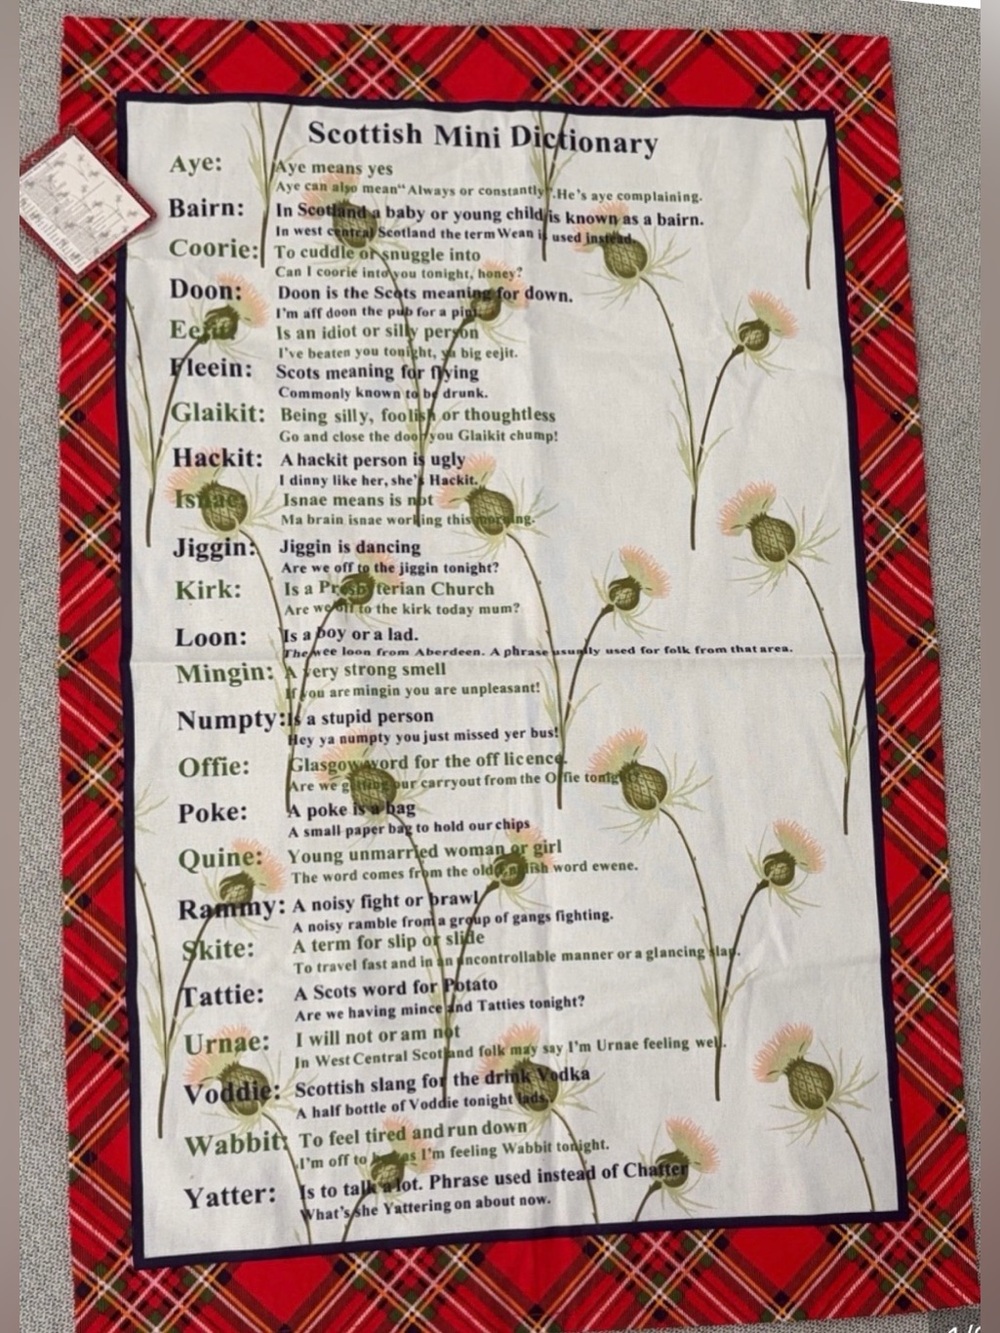 Scottish Mini Dictionary
Aye: Aye means yes
Aye can also mean "Always or constantly".He's aye complaining.
Bairn: In Scotland a baby or young child is known as a bairn.
In west central Scotland the term Wean is used instead.
Coorie: To cuddle or snuggle into
Can I coorie into you tonight, honey?
Doon: Doon is the Scots meaning for down.
I'm aff doon the pub for a pint.
Eejit: Is an idiot or silly person
I've beaten you tonight, ya big eejit.
Fleein: Scots meaning for flying
Commonly known to be drunk.
Glaikit: Being silly, foolish or thoughtless
Go and close the door you Glaikit chump!
Hackit: A hackit person is ugly
I dinny like her, she's Hackit.
Isnae: Isnae means is not
Ma brain isnae working this morning.
Jiggin: Jiggin is dancing
Are we off to the jiggin tonight?
Kirk: Is a Presbyterian Church
Are we off to the kirk today mum?
Loon: Is a boy or a lad.
The wee loon from Aberdeen. A phrase usually used for folk from that area.
Mingin: A very strong smell
If you are mingin you are unpleasant!
Numpty: Is a stupid person
Hey ya numpty you just missed yer bus!
Offie: Glasgow word for the off licence.
Are we getting our carryout from the Offie tonight?
Poke: A poke is a bag
A small paper bag to hold our chips
Quine: Young unmarried woman or girl
The word comes from the old English word ewene.
Rammy: A noisy fight or brawl
A noisy ramble from a group of gangs fighting.
Skite: A term for slip or slide
To travel fast and in an uncontrollable manner or a glancing slap.
Tattie: A Scots word for Potato
Are we having mince and Tatties tonight?
Urnae: I will not or am not
In West Central Scotland folk may say I'm Urnae feeling well.
Voddie: Scottish slang for the drink Vodka
A half bottle of Voddie tonight lads.
Wabbit: To feel tired and run down
I'm off to as I'm feeling Wabbit tonight.
Yatter: Is to talk a lot. Phrase used instead of Chatter
What's she Yattering on about now.